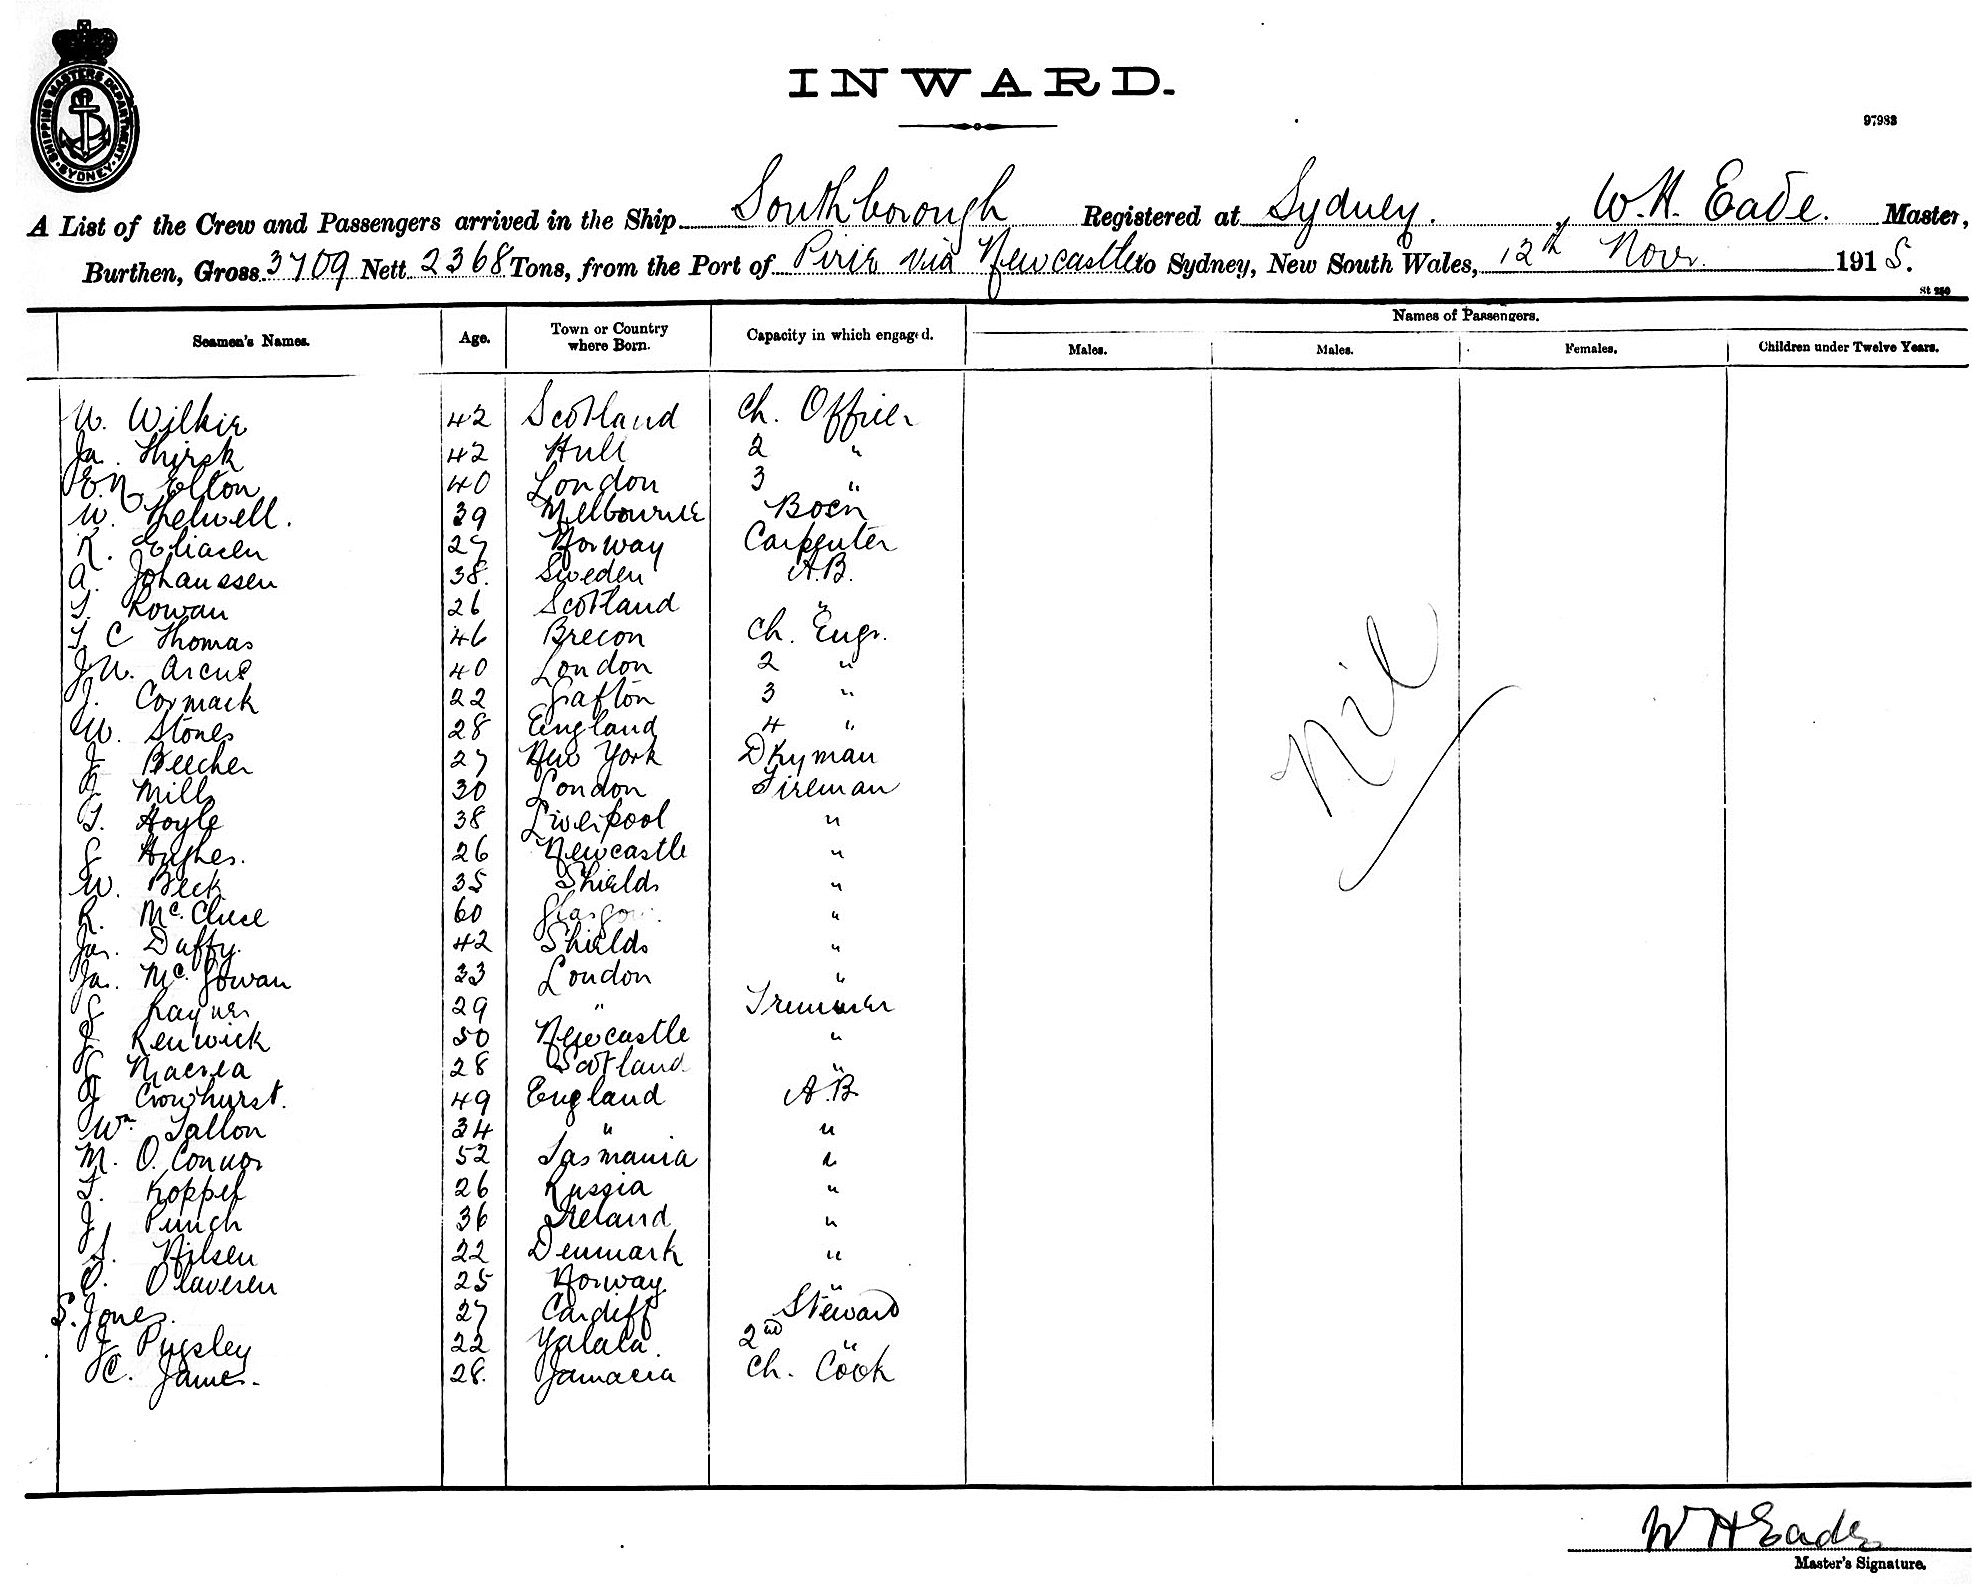 SHIPPING MASTERS DEPARTMENT
SYDNEY
INWARD.
97983
A List of the Crew and Passengers arrived in the Ship Southborough Registered at Sydney. , W. H. Eade. Master,
Burthen, Gross 3709 Nett 2368 Tons, from the Port of Pirie via Newcastle to Sydney, New South Wales, 12th Novr. 1915.
Seamen's Names. Age. Town or Country where Born. Capacity in which engaged. Names of Passengers.
Males. Males. Females. Children under Twelve Years.
W. Wilkie 42 Scotland Ch. Officer
Ja. Thirsk 42 Hull 2 "
E. N. Elton 40 London 3 "
W. Thelwell. 39 Melbourne Bosn
R. Eliasen 27 Norway Carpenter
A. Johanssen 38. Sweden A.B.
T. Rowan 26 Scotland "
T. C Thomas 46 Brecon Ch. Engr.
J. W. Arcus 40 London 2 "
J. Cormack 22 Grafton 3 "
W. Stones 28 England 4 "
J. Beecher 27 New York Dkyman
Mills 30 London Fireman
T. Hoyle 38 Liverpool "
Hughes. 26 Newcastle "
W. Beck 35 Shields "
R. McClure 60 Glasgow. "
Jas. Duffy. 42 Shields "
Ja. McGowan 33 London "
Rayner 29 " Trimmer
J Renwick 50 Newcastle "
Macrea 28 Scotland "
J Crowhurst. 49 England A.B
Wm. Tallon 34 " "
M. O. Connor 52 Tasmania "
T. Koppel 26 Russia "
J. Punch 36 Ireland "
S. Nilsen 22 Denmark "
O. Olavesen 25 Norway "
S. Jones. 27 Cardiff Steward
J Pugsley 22 Yalata. 2nd "
C. James. 28. Jamacia Ch. Cook
Nil
W H Eade
Master's Signature.